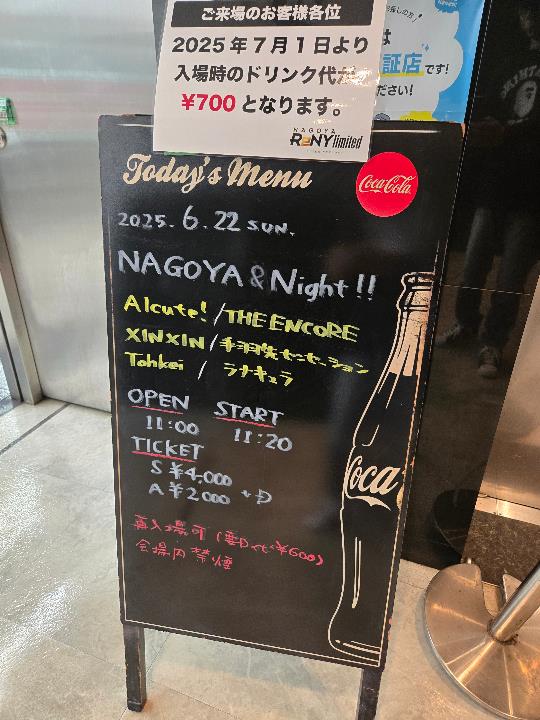 ご来場のお客様各位
2025年7月1日より
入場時のドリンク代が
¥700 となります。
NAGOYA
RENY limited
は
証店です!
ださい!
Today's Menu
Coca-Cola
2025. 6.22 SUN.
NAGOYA & Night!!
Alcute! / THE ENCORE
XINXIN / 手羽先センセーション
Tohkei / ラナキュラ
OPEN START
11:00 11:20
TICKET
S ¥4,000
A ¥2000 +D
再入場可 (要D代¥600)
会場内禁煙
Coca